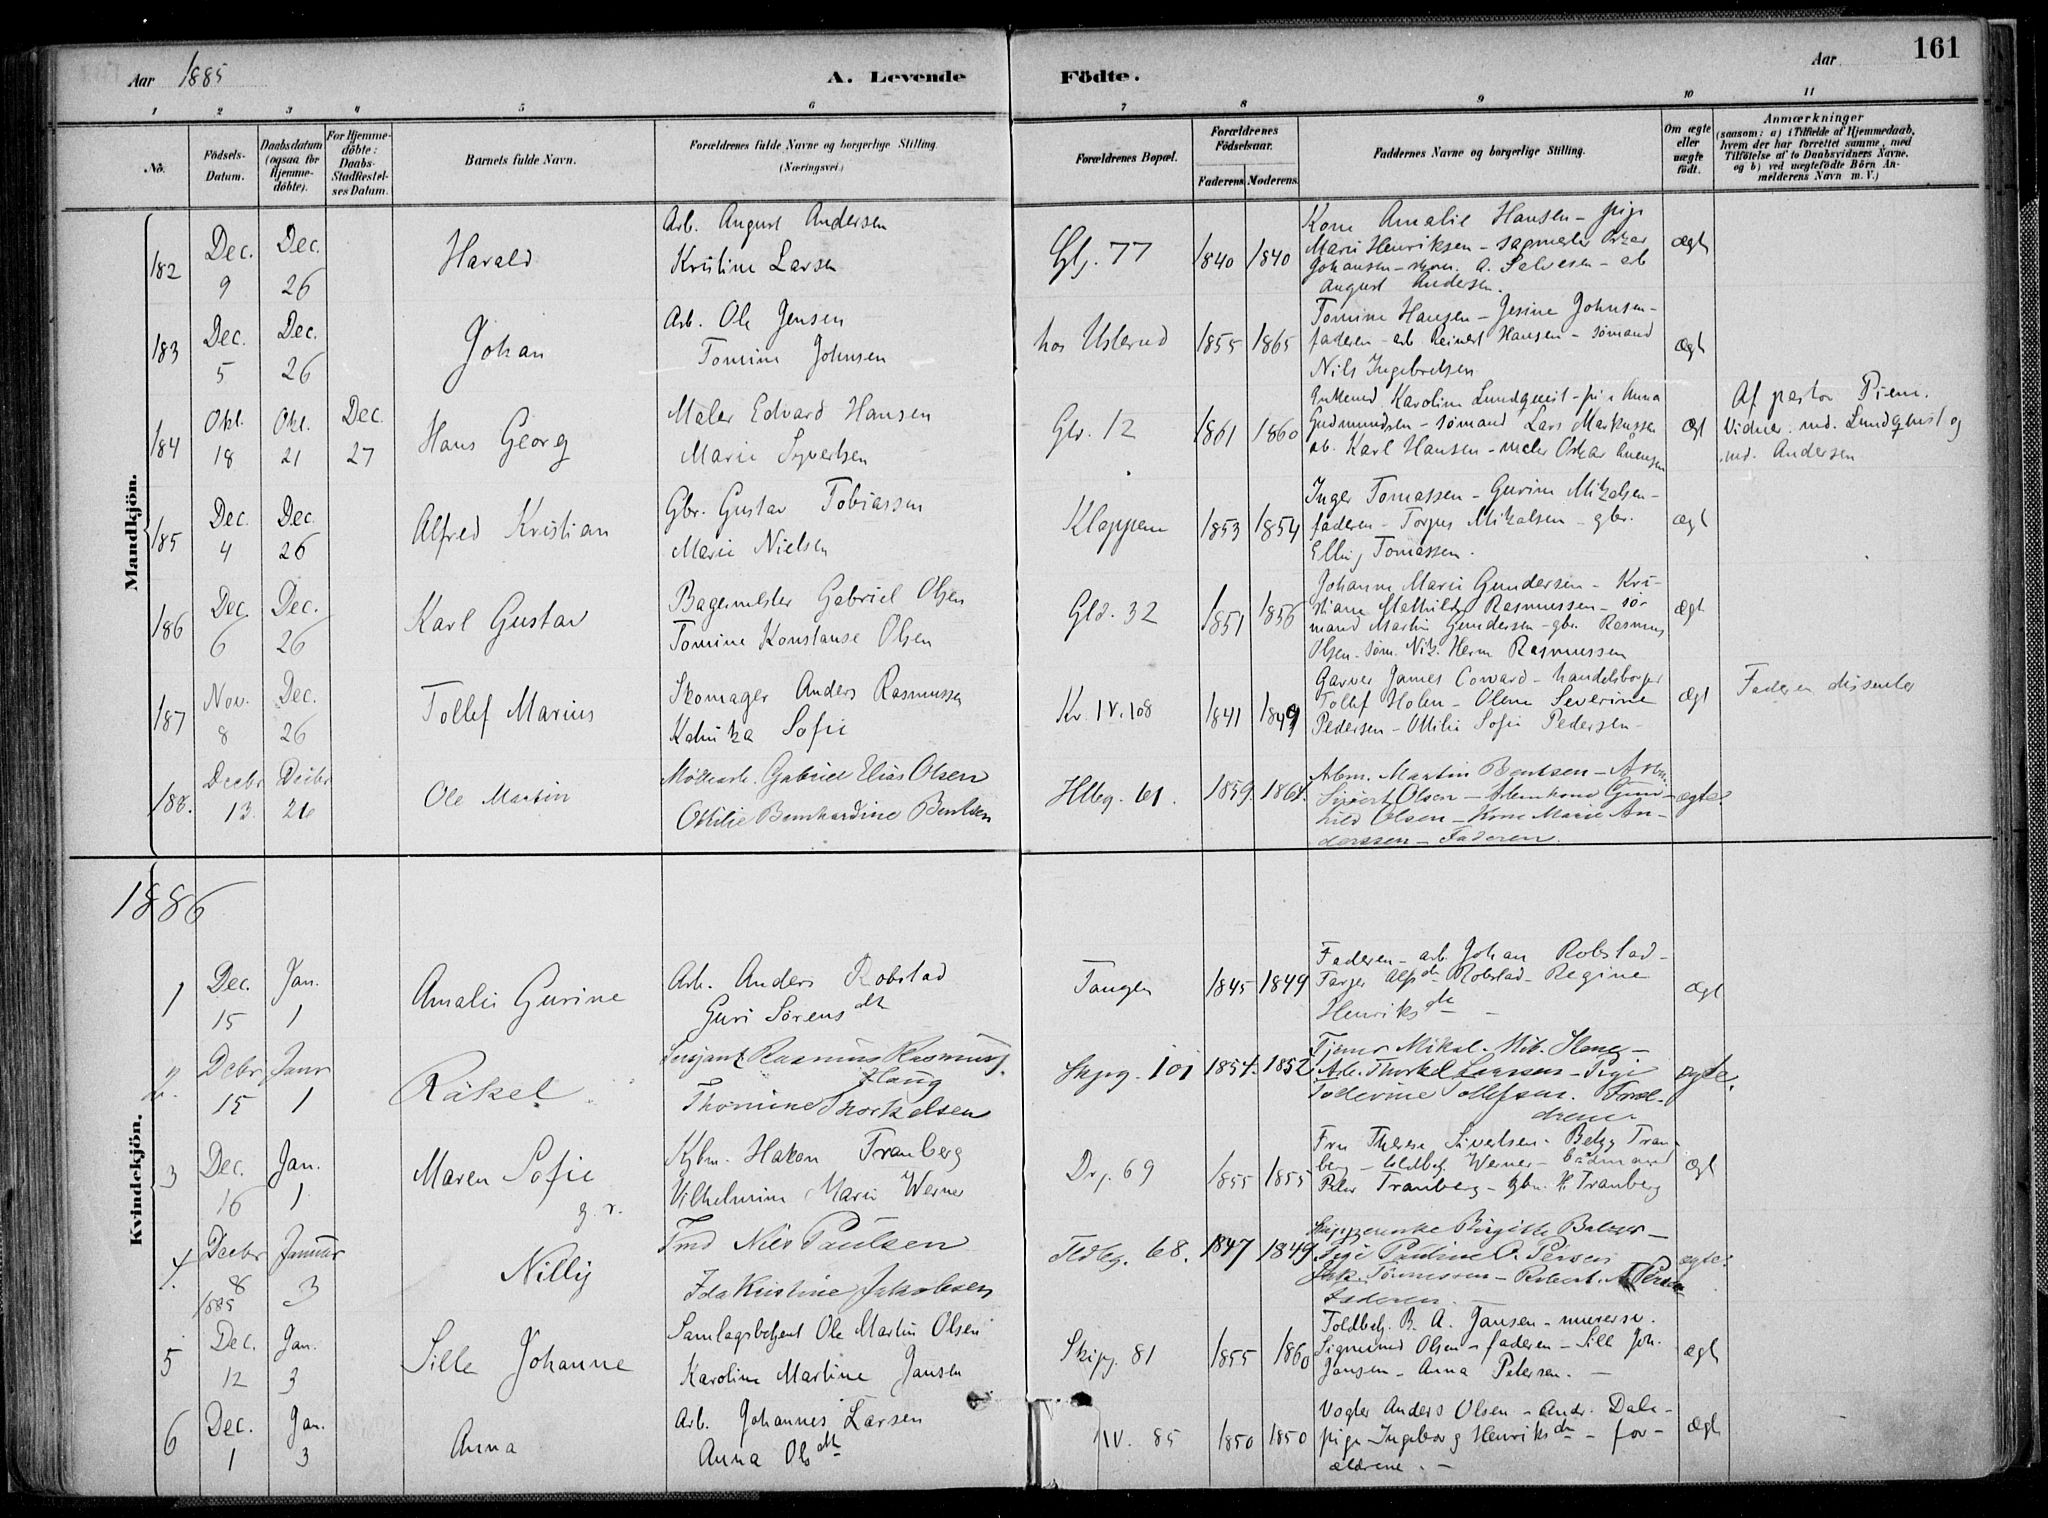 Aar 1885 A. Levende Födte. Aar 161
1 2 3 4 5 6 7 8 9 10 11
No. Födsels-Datum. Daabsdatum (ogsaa for Hjemmedöbte). For Hjemmedöbte: Daabs-Stadfæstelses Datum. Barnets fulde Navn. Forældrenes fulde Navne og borgerlige Stilling. (Næringsvei.) Forældrenes Bopæl. Forældrenes Födselsaar. Faderens Moderens. Faddernes Navne og borgerlige Stilling. Om ægte eller uægte födt. Anmærkninger (saasom: a) i Tilfælde af Hjemmedaab, hvem der har forrettet samme, med Tilföielse af to Daabsvidners Navne, og b) ved uægtefödte Börn Anmelderens Navn m. V.)
Mandkjön.
182 Dec. 9 Dec. 26 Harald
Arb. August Andersen
Kristine Larsen
77 1840 1840
Kone Amalie Hansen - pige
Marie Henriksen - sagmester Oskar
Johansen - A. Salvesen - arb
August Andersen.
ægt
183 Dec. 5 Dec. 26 Johan
Arb. Ole Jensen
Tomine Johnsen
hos Usterud 1855 1865
Tomine Hansen - Jesine Johnsen -
faderen - arb Reinert Hansen - sømand
Nils Ingebretsen
ægt
184 Okt. 18 Okt. 21 Dec. 27 Hans Georg
Maler Edvard Hansen
Marie Syvertsen
12 1861 1860
Karoline Lundqvist - pige Anna
Gudmundsen - sømand Lars Markussen
arb. Karl Hansen - maler Oskar
ægt
Af pastor
Vidner. md. Lundqvist og
md. Andersen
185 Dec. 4 Dec. 26 Alfred Kristian
Gbr. Gustav Tobiassen
Marie Nielsen
Kleppene 1853 1854
Inger Tomassen - Gurine Mikalsen -
faderen - Torjus Mikalsen - gbr.
Elling Tomassen.
ægt
186 Dec. 6 Dec. 26 Karl Gustav
Bagermester Gabriel Olsen
Tomine Konstanse Olsen
32 1851 1856
Johanne Marie Gundersen - Kri-
stiane Mathilde Rasmussen - sø-
mand Martin Gundersen - gbr. Rasmus
Olsen - søm. Herm Rasmussen
ægt
187 Nov. 8 Dec. 26 Tollef Marius
Skomager Anders Rasmussen
Sofie
Kr. IV. 108 1841 1849
Garver James Coward - handelsborger
Tollef Holen - Olene Severine
Pedersen - Ottilie Sofie Pedersen -
ægt
Faderen dissenter
188. Decbr 13. Decbr 26 Ole Martin
Gabriel Elias Olsen
Othilie Bernhardine Bentsen
61. 1859. 1864.
Arbm. Martin Bentsen - Arbm.
Sivert Olsen - Arbmkone Gun-
hild Olsen - Kone Marie An-
derssen - Faderen.
ægte
1886
Kvindekjön.
1 Dec. 15 Jan. 1 Amalie Gurine
Arb. Anders Robstad
Guri Sørensdtr
Tangen 1845 1849
Faderen - arb Johan Robstad -
Robstad - Regine
Henriksdtr -
ægt
2. Decbr 15 Januar 1 Rakel
Sergiant Rasmus Rasmuss.
Haug
Thomine Thorkelsen
101 1854. 1852
Arb. Thorkel Larsen - Pige
Tollefsen. Foræl-
drene.
ægte.
3 Dec. 16 Jan. 1 Maren Sofie
Kjbm. Hakon Tranberg
Vilhelmine Marie Werner
69 1855 1855
Fru Therese Sivertsen - Betzy Tran-
berg - toldbetj. Werner - bådmand
Peter Tranberg - kjbm. H. Tranberg
ægt
4. Decbr 8 1885 Januar 3 g. v. Nilly
Tmd Niels Paulsen
Ida Kristine Jakobsen
68. 1847 1849
Skipperenke Birgitte Balzer -
Pige Pauline
Tønnessen - Robert
Faderen.
ægte
5 Dec. 12 Jan. 3 Sille Johanne
Samlagsbetjent Ole Martin Olsen
Karoline Martine Jansen
81 1855 1860
Toldbetj. B. A. Jansen - murersv.
Sigmund Olsen - faderen - Sille Joh.
Jansen - Anna Petersen. -
ægt
6 Dec. 1 Jan. 3 Anna
Arb. Johannes Larsen
Anna Olsdtr
IV. 85 1850 1850
Vogter Anders Olsen - Andr. Dale -
pige Ingeborg Henriksdtr - for-
ældrene. -
ægt